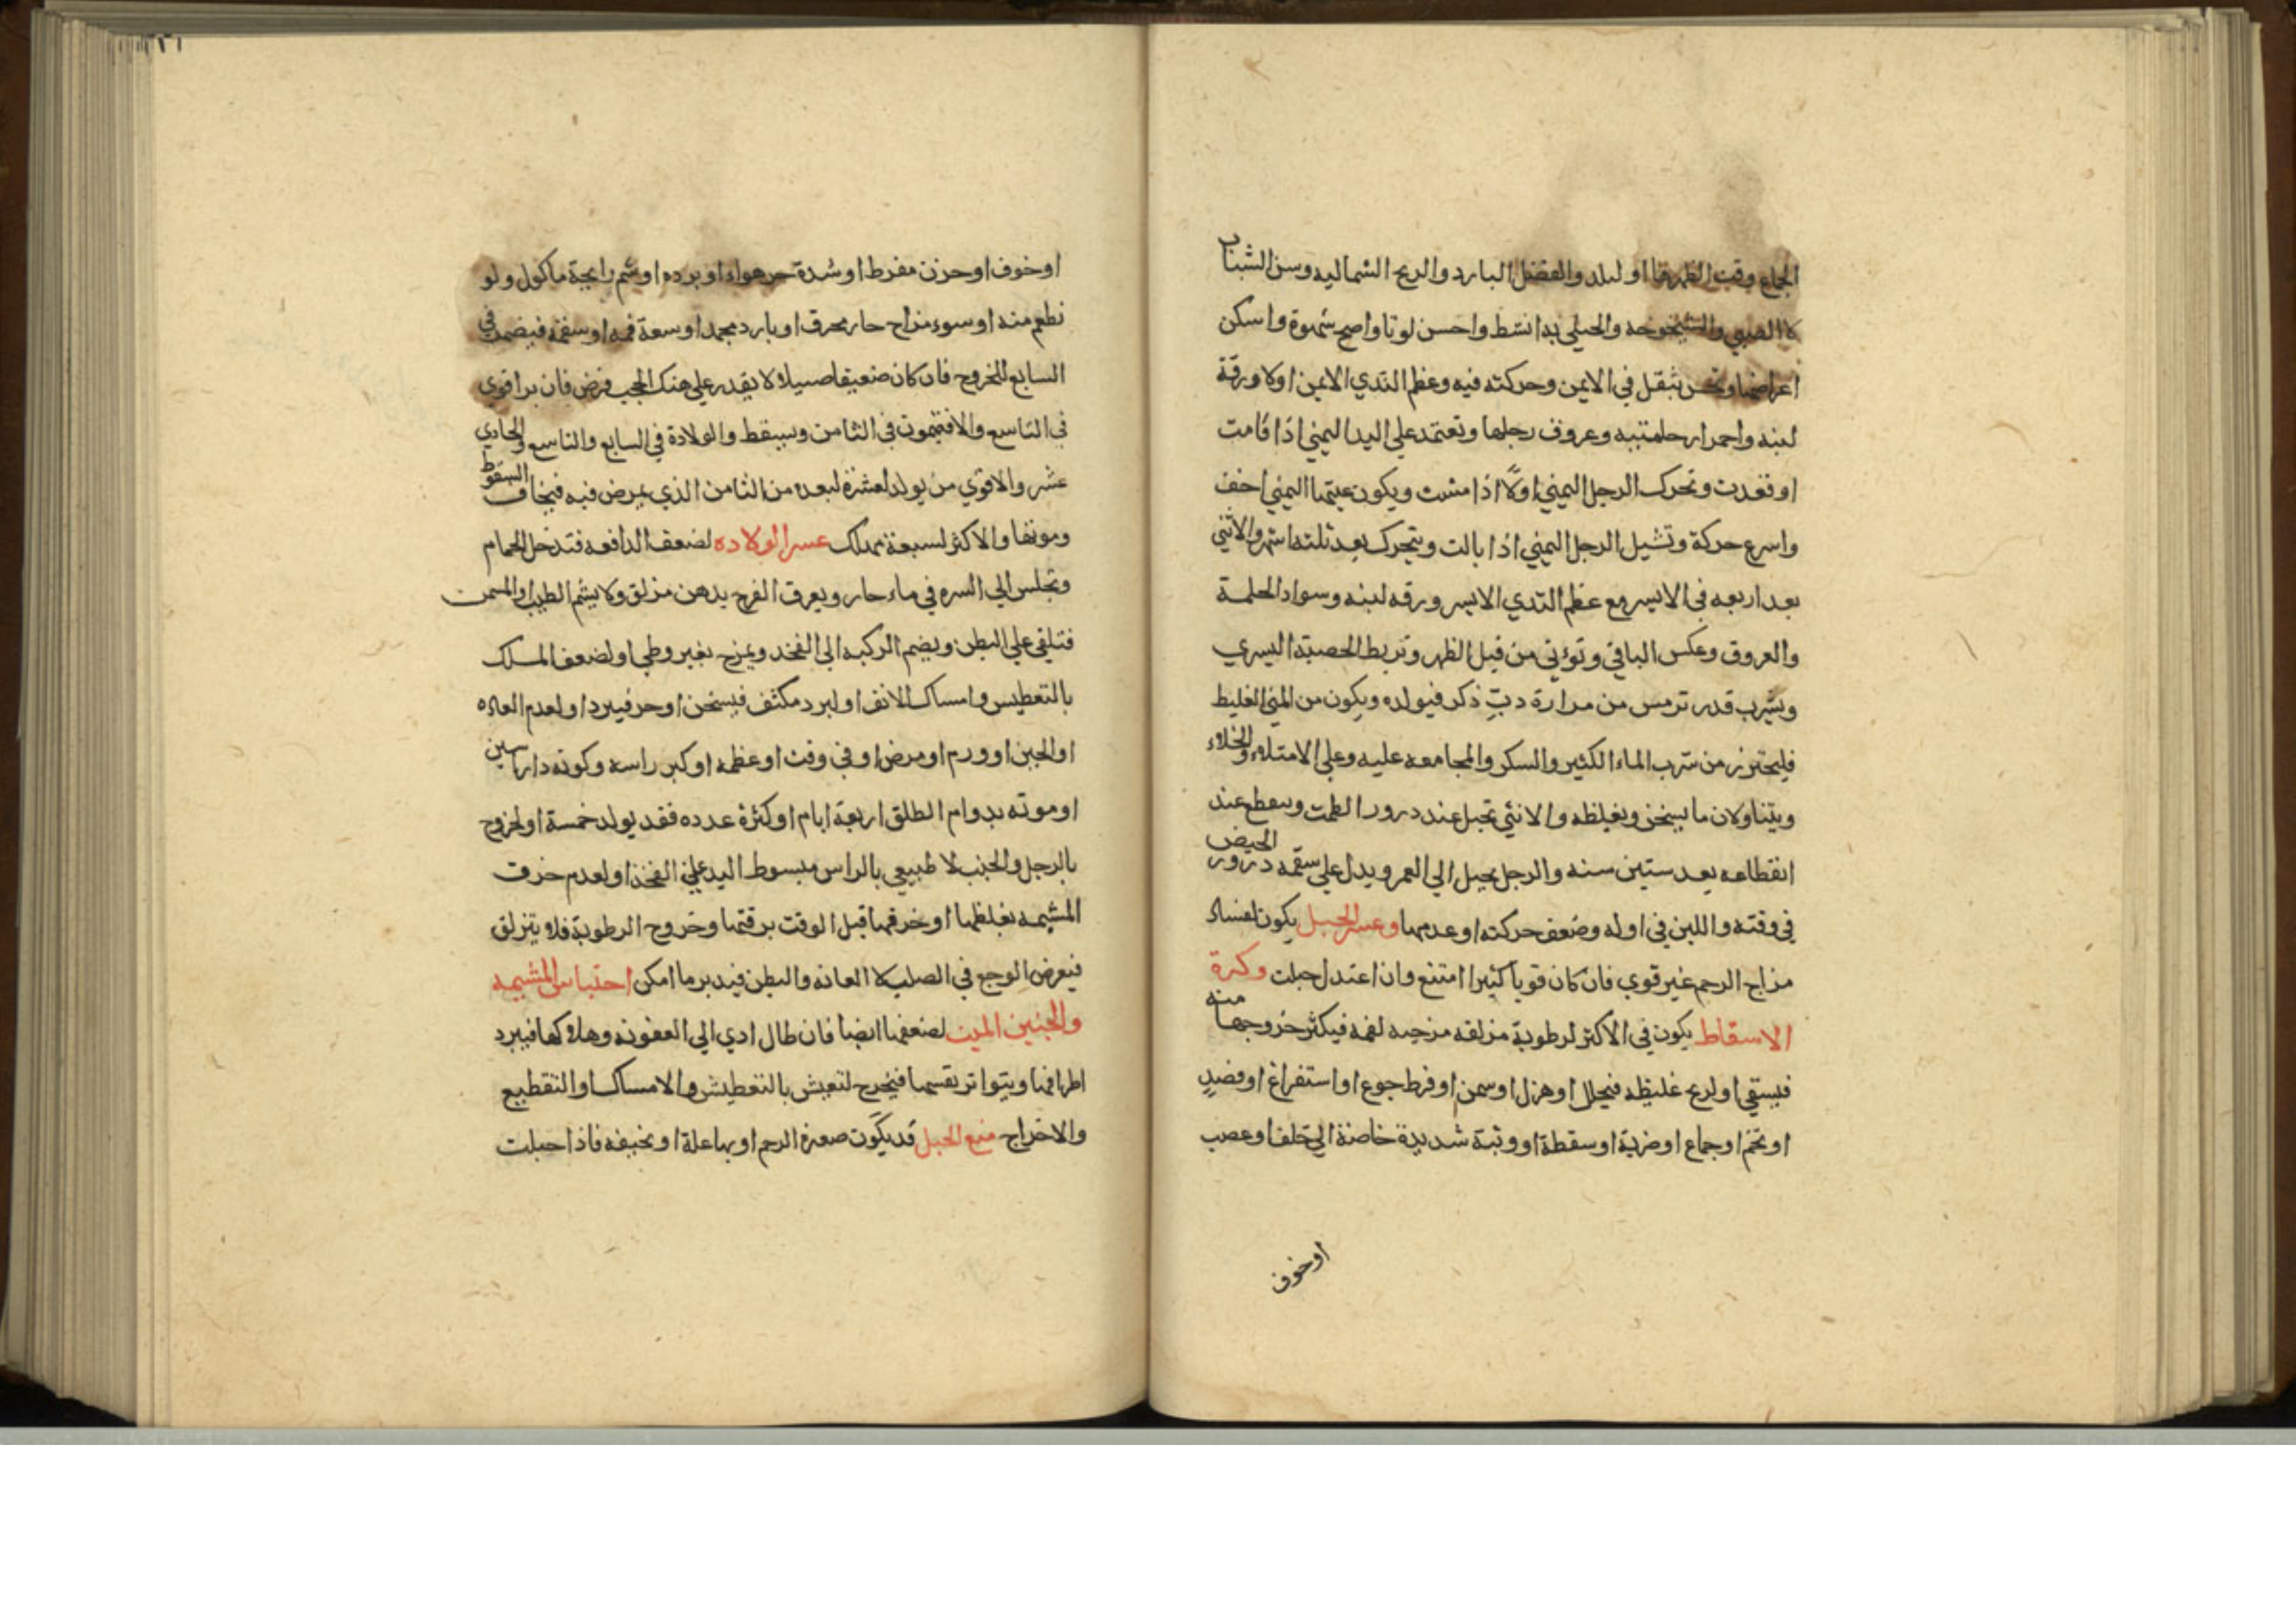 الجماع وقت الطهر فا او لبلد والفصل البارد والريح الشماليه وسن الشباب
لا الصبي والشيخوخه والحبلي به انشط واحسن لونا واصح شهوة واسكن
اعراضا وتحس بثقل في الايمن وحركته فيه وعظم الثدي الايمن اولا ورقة
لبنه واحمرار حلمتيه وعروق رجلها وتعتمد علي اليد اليمني اذا قامت
او قعدت وتحرك الرجل اليمني اولًا اذا مشت ويكون عينها اليمني اخف
واسرع حركة وتشيل الرجل اليمني اذا بالت ويتحرك بعد ثلثه اشهر والانثي
بعد اربعه في الايسر مع عظم الثدي الايسر ورقه لبنه وسواد الحلمة
والعروق وعكس الباقي وتؤتي من قبل الظهر وتربط الخصية اليسري
ويشرب قدر ترمس من مرارة دبٍّ ذكر فيولده ويكون من المني الغليظ
فليحترز من شرب الماء الكثير والسكر والمجامعه عليه وعلي الامتلاء والخلاء
ويتناولان ما يسخن ويغلظه والانثي تحبل عند درور الطمث وينقطع عند
انقطاعه بعد ستين سنه والرجل يحبل الي العمر ويدل علي سقمه درور الحيض
في وقته واللبن في اوله وضعف حركته او عدمها وعسر الحبل يكون لفساد
مزاج الرحم غير قوي فان كان قويا كثيرا امتنع وان اعتدل حبلت وكثرة
الاسقاط يكون في الاكثر لرطوبة مزلقه مرخيه لفمه فيكثر خروجها منه
فيستقي او لريح غليظه فيحلل او هزل او سمن او فرط جوع او استفراغ او فصدٍ
او تخم او جماع او ضربة او سقطة او وثبة شديدة خاصة الي خلفا وعصب
او خوف
او خوف او حزن مفرط او شدة حر هواء او برده او شم رايحة ماكول ولو
نطعم منه او سوء مزاج حار محرق او بارد مجمد او سعة فمه او سفنه فيضمد في
السابع للخروج فان كان ضعيفا صييلا لا يقدر علي هتك الحجب مرض فان برا قوي
في التاسع والا فيموت في الثامن وسيقط والولادة في السابع والتاسع والحادي
عشر والاقوي من يولد لعشرة لبعده من الثامن الذي يمرض فيه فيخاف السقوط
وموتها والاكثر لسبعة مهلك عسر الولاده لضعف الدافعه فتدخل الحمام
وتجلس الي السره في ماء حار ويعرق الفرج بدهن مزلق ولا يشم الطيب او للسمن
فتلقي علي البطن ويضم الركبه الي الفخد ويمزج بقيروطي او لضعف المسلك
بالتعطيس وامساك الانف او لبرد مكثف فيسخن او حر فيبرد او لعدم العاده
او الجبن او ورم او مرض او في وقت او عظمه او كبر راسه وكونه دا راسين
او موته بدوام الطلق اربعة ايام او كثرة عدده فقد يولد خمسة او لخروج
بالرجل والجنب لا طبيعي بالراس مبسوط اليد علي الفخذ او لعدم خرق
المشيمه بغلظها او خرقها قبل الوقت برقتها وخروج الرطوبة فلا ويتزلق
فيعرض الوجع في الصلب لا العانه والبطن فيدبر ما امكن احتباس المشيمه
والجنين الميت لضعفها ايضا فان طال ادي الي العفونه وهلاكها فيبرد
اطرافها ويتواتر نفسها فيخرج لتعيش بالتعطيش والامساك او التقطيع
والاخراج منع الحبل قد يكون صغرة الرحم او بها علة او نحيفه فاذا حبلت